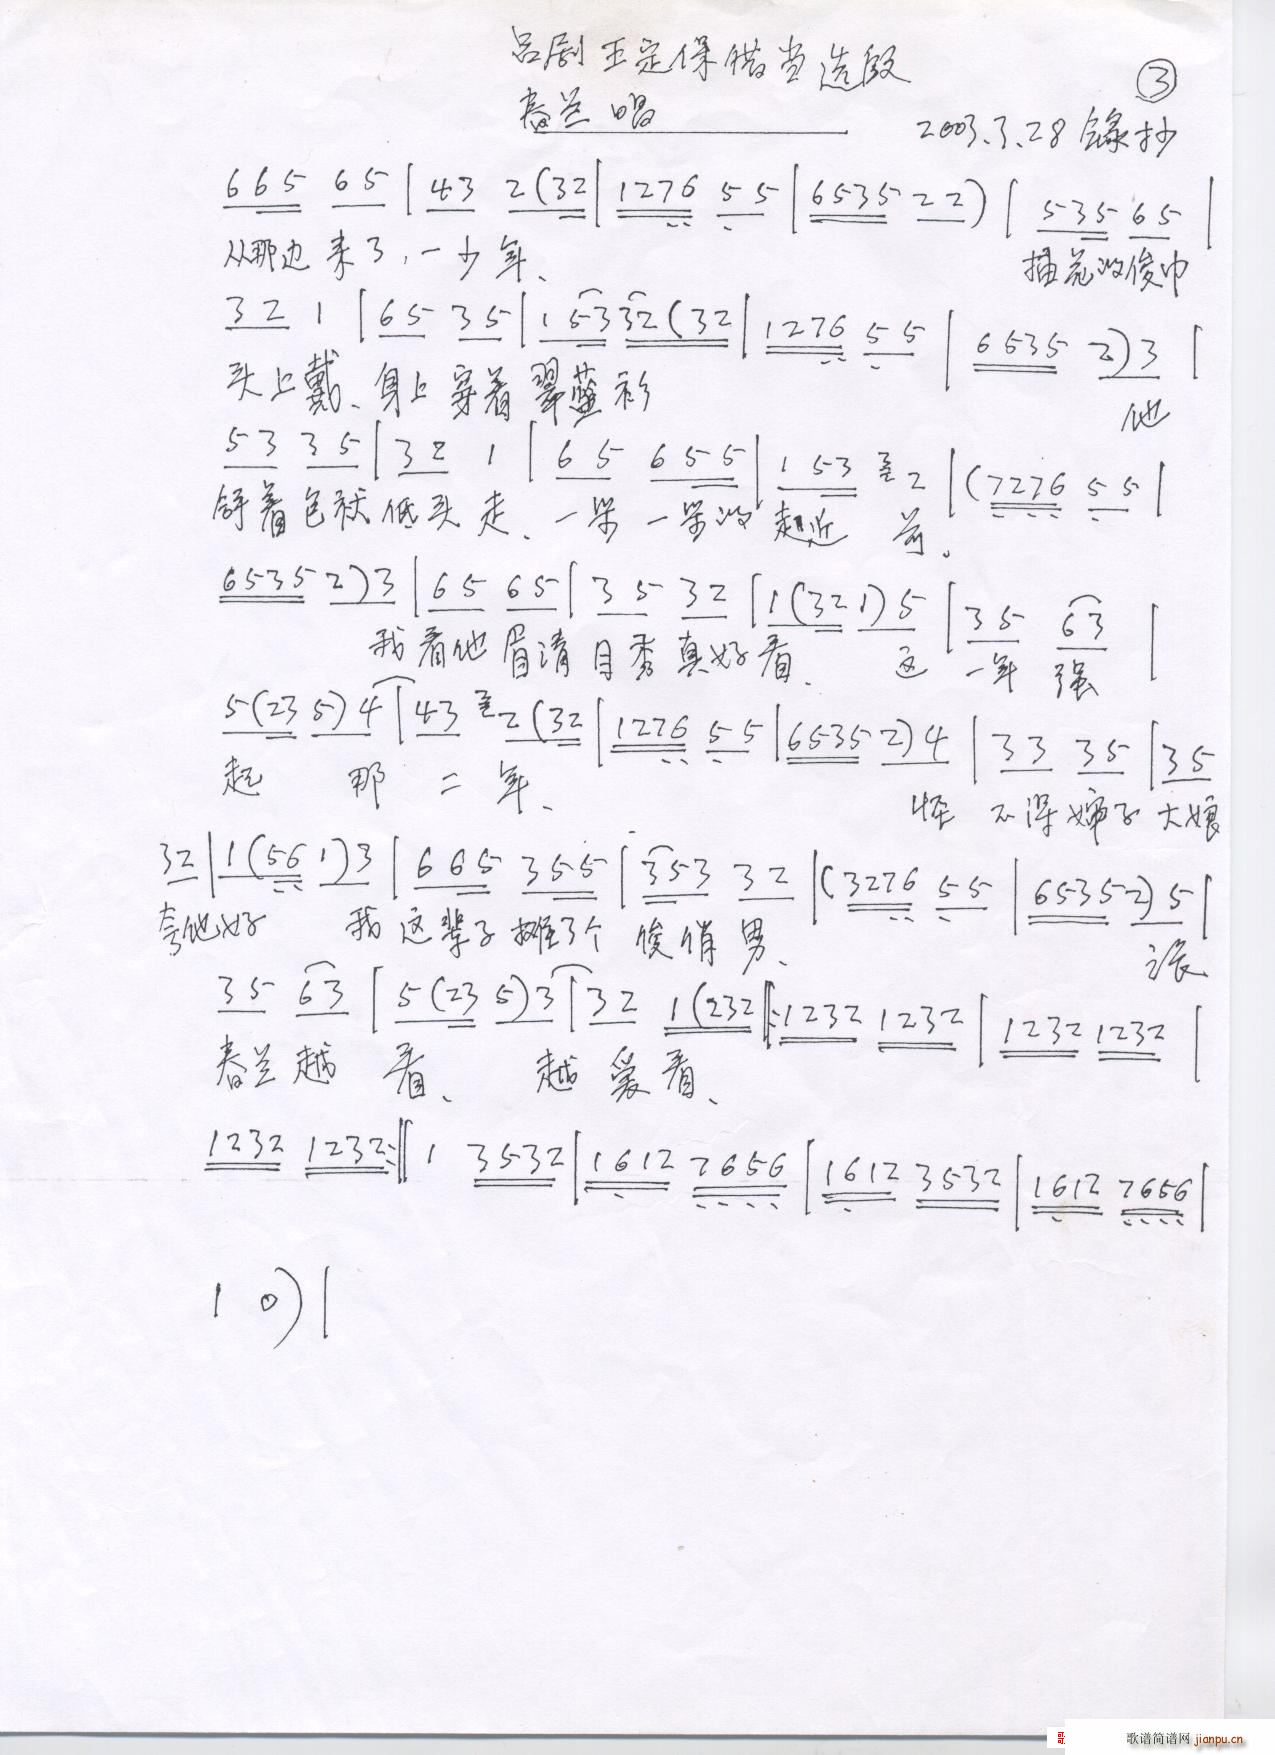 吕剧 王定保借当选段
③
春兰唱
2003.3.28 录抄
6 6 5 6 5 | 4 3 2 (3 2 | 1 2 7 6 5 5 | 6 5 3 5 2 2) | 5 3 5 6 5 |
从那边来了,一少年、 插花的俊巾
3 2 1 | 6 5 3 5 | 1 5 3 3 2 (3 2 | 1 2 7 6 5 5 | 6 5 3 5 2) 3 |
头上戴、身上穿着翠蓝衫 他
5 3 3 5 | 3 2 1 | 6 5 6 5 5 | 1 5 3 2 | (7 2 7 6 5 5 |
着包袱低头走、一步一步的走近 前。
6 5 3 5 2) 3 | 6 5 6 5 | 3 5 3 2 | 1 (3 2 1) 5 | 3 5 6 3 |
我看他眉清目秀真好看、 这一年 强
5 (2 3 5) 4 | 4 3 2 (3 2 | 1 2 7 6 5 5 | 6 5 3 5 2) 4 | 3 3 3 5 | 3 5
起 那 二 年、 怪 不得婶子大娘
3 2 | 1 (5 6 1) 3 | 6 6 5 3 5 5 | 3 5 3 3 2 | (3 2 7 6 5 5 | 6 5 3 5 2) 5 |
夸他好 我这辈子摊了个 俊俏男、
3 5 6 3 | 5 (2 3 5) 3 | 3 2 1 (2 3 2 ‖: 1 2 3 2 1 2 3 2 | 1 2 3 2 1 2 3 2 |
春兰越 看、 越爱看、
1 2 3 2 1 2 3 2 :‖ 1 3 5 3 2 | 1 6 1 2 7 6 5 6 | 1 6 1 2 3 5 3 2 | 1 6 1 2 7 6 5 6 |
1 0) |
歌谱简谱网 jianpu.cn